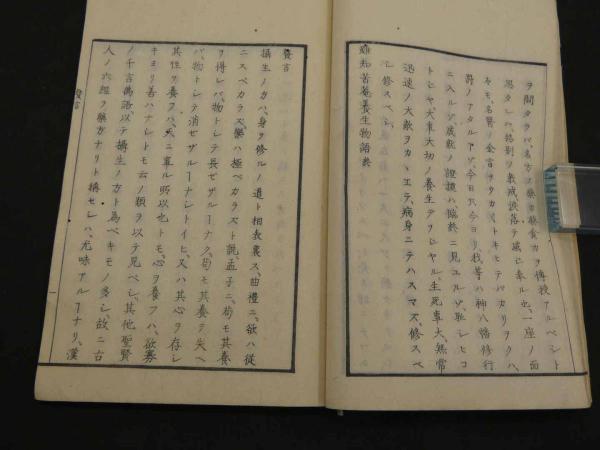 ヲ聞タラバ、名方ノ藥ヤ養食カヲ傳授アルベシト
思タレバ、格別ノ教戒説落テ感心奉ル也、一座ノ面
キモ、名醫ノ金言ヲウカバトキモテバカリヲクハ、
罸ノアタルアゾ、今日只今ヨリ、我等ハ神八幡修行
ニ入ルゾ、成就ノ證據ハ、臨終ニ見ユルゾ、耻シヒコ
トジヤ、大事大切ノ養生デヲジヤル、生死事大、無常
迅速ノ大敵ヲカヽエテ、病身ニテハスマヌ、修スベ
シ修スベシ、
難知苦菴養生物語終
養言
攝生ノ方ハ、身ヲ修ルノ道ト相表裏ス、曲禮ニ、欲ハ從
ニスベカラス、樂ハ極ベカラスト説、孟子ニ、苟モ其養
ヲ得レバ、物トシテ長ゼザルーナク、苟モ其養ヲ失ヘ
バ、物トシテ消ゼザルーナシトイヒ、又ハ其心ヲ存シ
其性ヲ養フハ、天ニ事ル所以也トモ、心ヲ養フハ、欲寡
キヨリ善ハナシトモ云ノ類ヲ以テ見ベシ、其他聖賢
ノ千言萬語、以テ攝生ノ方ト為ベキモノ多シ、故ニ古
人ノ六經ヲ藥方ナリト稱セシハ、尤味アルーナリ、漢